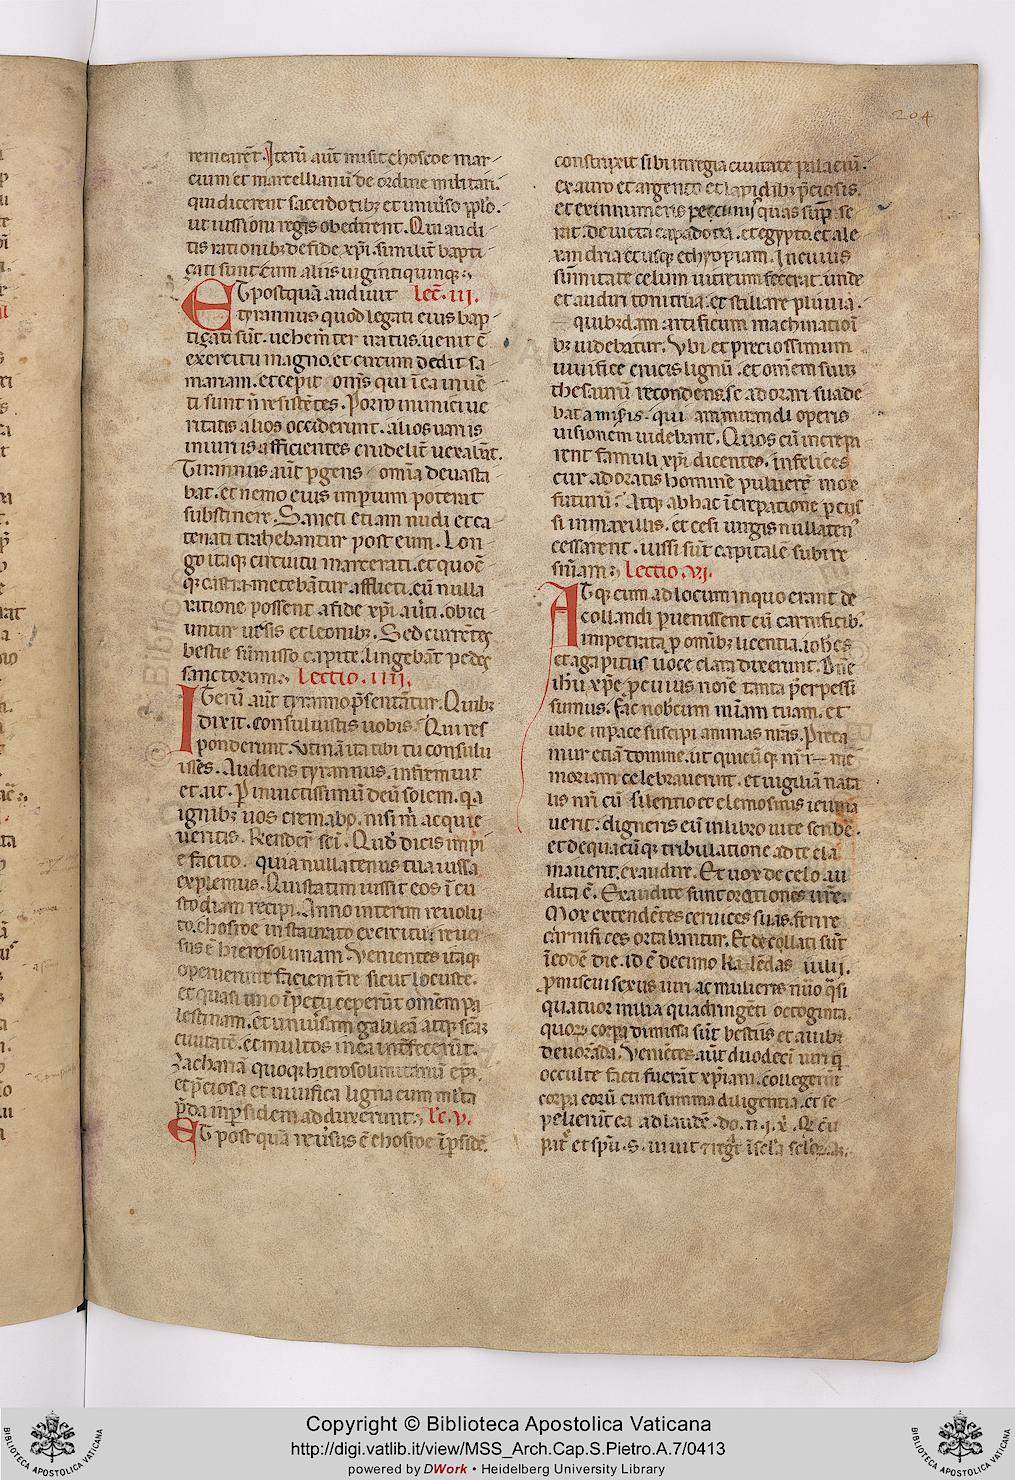 204
remearēt. Iterū aūt misit chosroe mar-
cium et martellianū de ordine militari.
qui dicerent sacerdotibꝫ et uniu͛so pplo.
ut iussioni regis obedirent. Qui audi
tis rationibꝫ de fide xp̄i. similit͛ bapti
çati sunt cum aliis uigintiquinqꝫ.
ET postquā audiuit lec̄. III.
tyrannus quod legati eius bap
tiçati sūt. uehemt͛er iratus. uenit cū
exercitu magno. et circum dedit sa
mariam. et cepit om̄s qui ī ea inuē
ti sunt n̄ resistētes. Porro inimici ue
ritatis alios occiderunt. alios uariis
iniuriis afficientes crudelit͛ uexabāt.
Tirannus aūt ꝑgens om̄ia deuasta
bat. et nemo eius impium poterat
substinere. Sancti etiam nudi et ca
tenati trahebantur post eum. Lon
go itaqꝫ circuitu macerati. et quoc̄
qꝫ castra metebātur. afflicti. cū nulla
ratione possent a fide xp̄i auti. obici
untur ursis et leonibꝫ. Sed currētes
bestie summisso capite. lingebāt pedes
sanctorum. Lectio. IIII.
ITerū aūt tyranno p̄sentātur. Quibꝫ
dixit. consuluistis uobis. Qui res
ponderunt. Utinā ita tibi tu consulu
isses. Audiens tyrannus. infremuit
et ait. P inuictissimū deū solem. q̄a
ignibꝫ uos cremabo. nisi m̄ acquie
ueritis. Rendēr sc̄i. Quod dicis impi
e facito. quia nullatenus tua iussa
explemus. Qui statim iussit eos ī cu
stodiam recipi. Anno interim reuolu
to. chosroe instaurato exercitu. reuer
sus ē hierosolimam. Venientes itaqꝫ
operuerunt faciem t̄re sicut locuste.
et quasi uno īpetu ceperūt om̄em pa
lestinam. et uniu͛sam galileā atqꝫ sc̄aꝫ
ciuitatē. et multos in ea int͛fecerūt.
Zachariā quoqꝫ hierosolimitanū ep̄m.
et p̄ciosa et uiuifica ligna cum ml̄ta
p̄da in ꝑsidem adduxerunt. le. V.
ET postquā reu͛sus ē chosroe ī ꝑsidē.
construxit sibi in regia ciuitate palaciū.
ex auro et argento et lapidibꝫ p̄ciosis.
et ex innumeris pecuniis quas sup͛ se
rat. deuicta capadocia. et egypto. et ale
xandria et usqꝫ ethyopiam. In cuius
sūmitate celum uitreum fecerat. unde
et audiri tonitrua. et stillare pluuia.
quibꝫdam artificum machinatioī
bꝫ uidebatur. Ubi et preciosissimum
uiuifice crucis lignū. et om̄em suuꝫ
thesaurū recondens. se adorari suade
bat a miseris. qui ammirandi operis
uisionem uidebant. Quos cū increpa
rent famuli xp̄i dicentes. infelices
cur adoratis hominē puluerē mox
futurū? Atqꝫ ab hac īcrepatione ꝑcus
si in maxillis. et cesi uirgis nullaten͛
cessarent. iussi sūt capitalē subire
sn̄iam. Lectio. VI.
ATqꝫ cum ad locum in quo erant de
collandi ꝑuenissent cū carnificibꝫ.
impetrata p͛ om̄ibꝫ licentia. ioh̄es
et agapitus uoce elata dixerunt. Dn̄e
ih̄u xp̄e ꝓ cuius noīe tanta perpessi
sumus. fac nobcum mīam tuam. et
iube in pace suscipi animas nr̄as. Preca
mur etiā domine. ut quicūqꝫ nr̄i me
moriam celebrauerint. et uigiliā nata
lis nr̄i cū silentio et elemosinis ieiuna
uerit: digneris eū in libro uite scribē.
et de quacūqꝫ tribulatione ad te cla
mauerit. exaudire. Et uox de celo au
dita ē. Exaudite sunt orationes ur̄e.
Mox extendētes ceruices suas. ferire
carnifices ortabantur. Et decollati sūt
ī eodē die. id ē decimo kalēdas iulii.
ꝓmiscui sexus uiri ac mulieris nūo q̄si
quatuor milia quadringēti octoginta.
quorꝫ corꝑa dimissa sūt bestiis et auibꝫ
deuorāda. Veniētes aūt duodecī uiri q̄
occulte facti fuerāt xp̄iani. collegerūt
corꝑa eorū cum summa diligentia. et se
pelierūt ea ad laudē. do. n. i. x. Qꝫ cū
pat͛ et sp̄u. s. uiuit
Copyright © Biblioteca Apostolica Vaticana
http://digi.vatlib.it/view/MSS_Arch.Cap.S.Pietro.A.7/0413
powered by DWork • Heidelberg University Library
BIBLIOTECA APOSTOLICA VATICANA
BIBLIOTECA APOSTOLICA VATICANA